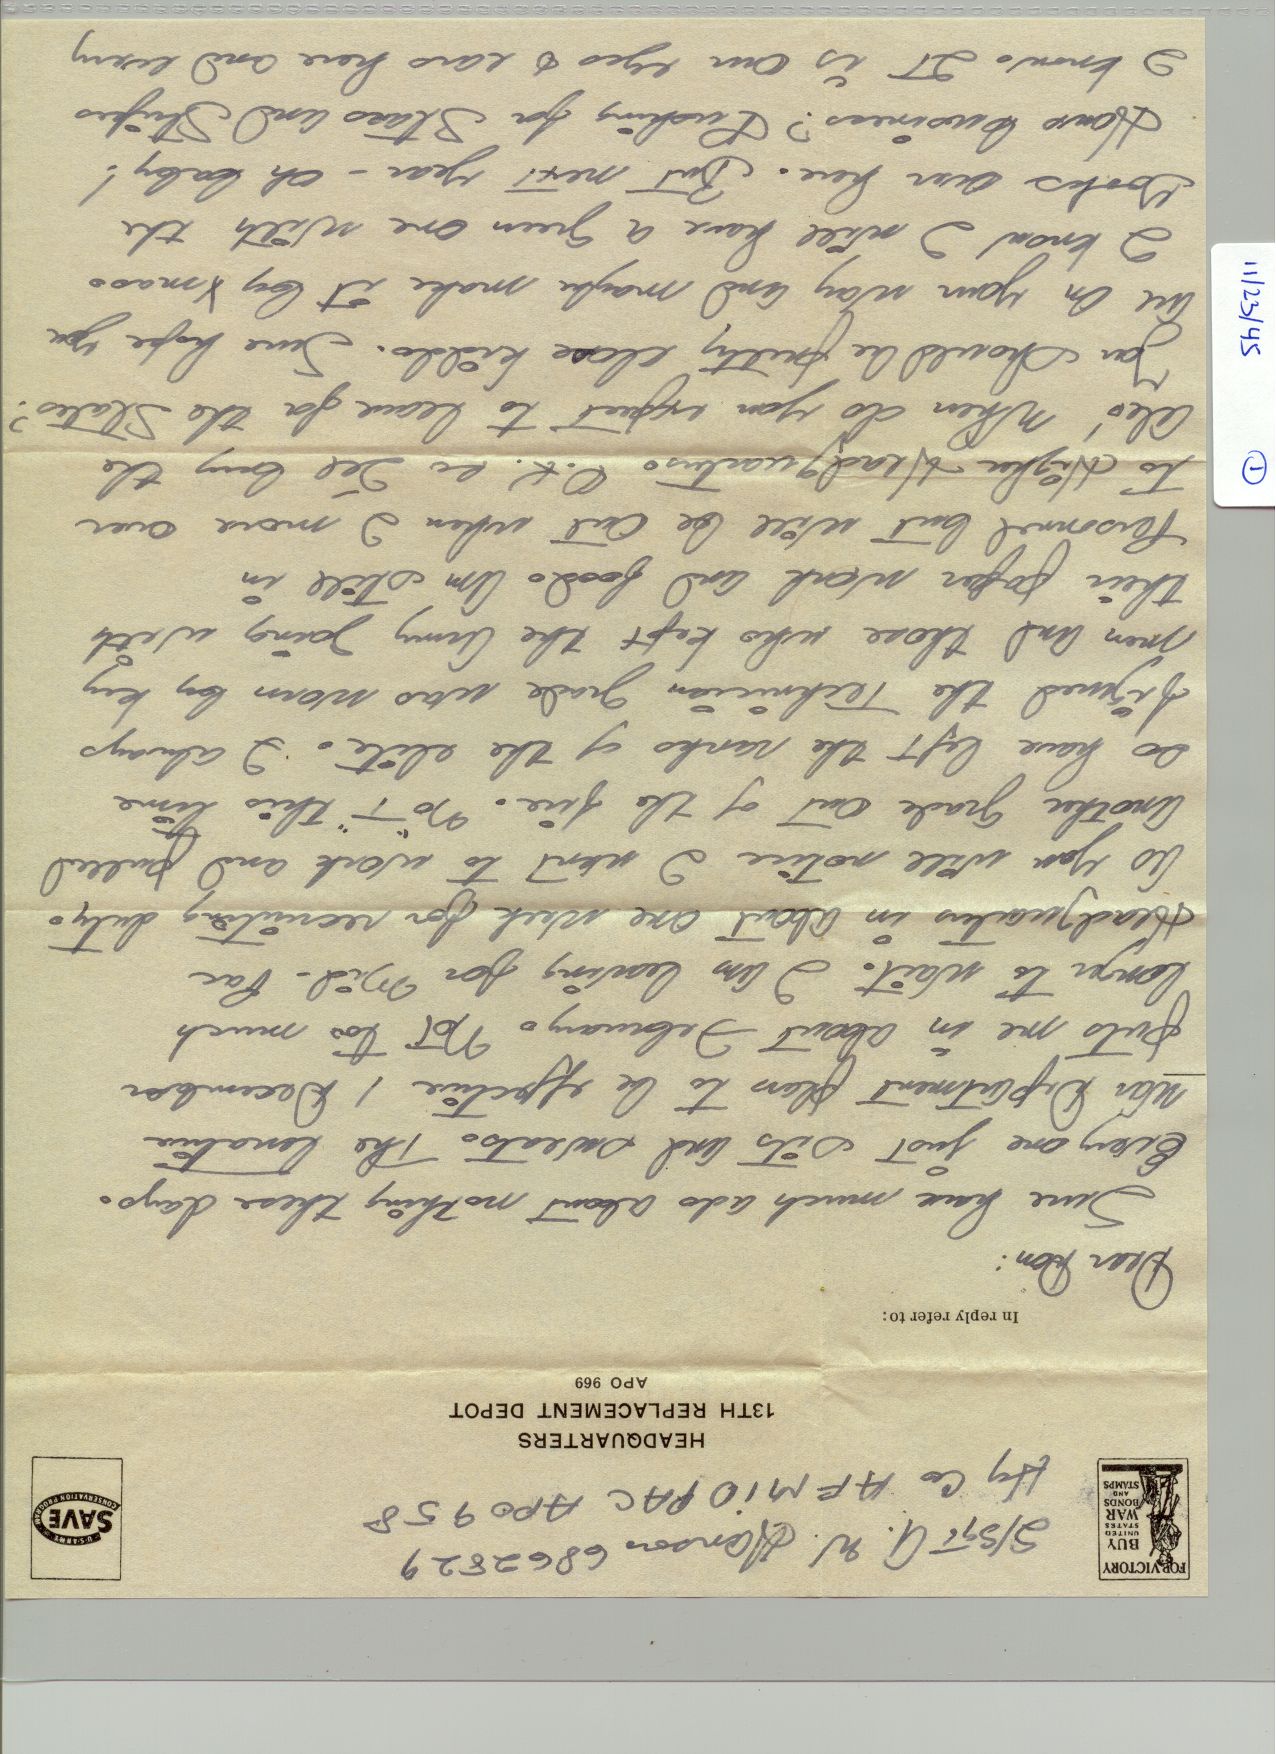 11/23/45
1
FOR VICTORY
BUY
UNITED
STATES
WAR
BONDS
AND
STAMPS
S/Sgt A. W. Hanson 6862829
Hq Co AFMIDPAC APO 958
U.S. ARMY
SAVE
CONSERVATION PROGRAM
HEADQUARTERS
13TH REPLACEMENT DEPOT
APO 969
In reply refer to:
Dear Don:
Sure have much ado about nothing these days.
Every one just sits and sweats. The tenative
War Department plans to be effective 1 December
puts me in about February. Not too much
longer to wait. I am leaving for Mid-Pac
Headquarters in about one week for recruiting duty.
As you will notice I went to work and pulled
another grade out of the fire. No "T" this time
so have left the ranks of the elite. I always
figured the Technician grade was worn by key
men and those who kept the Army going with
their paper work and food. Am still in
Personnel but will be out when I move over
to Higher Headquarters. O.K. so I'll buy the
Also! When do you expect to leave for the States?
You should be pretty close kiddo. Sure hope you
are on your way and maybe make it by Xmas.
I know I will have a green one with the
Gooks over here. But next year - oh baby!
Hows business? Pushing for Stars and Stripes
I know. It is our eyes & ears here and every